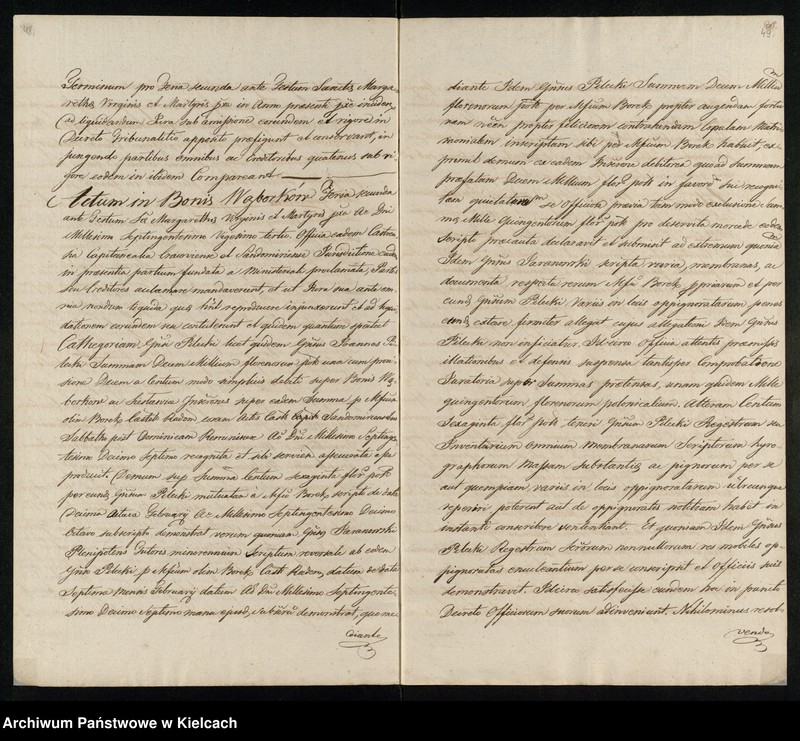 49.
Terminum pro Feria secunda ante Festum Sanctæ Marga
rethæ Virginis et Martyris pra in Anno præsenti
ad liquidandum Jura sub amissione eorundem et rigore in
Decreto Tribunalitio appenso præfigunt et conservant, in
jungendo partibus omnibus ac Creditoribus quatenus sub ri
gore eodem in ibidem Compareant
Actum in Bonis Feria secunda
ante Festum Sæ Margarethæ Virginis et Martyris pra Ao Dni
Millesimo Septingentesimo Vigesimo tertio. Officia eadem Castren
sia Capitanealia Cracoviense et Sandomiriense Jurisdictione eadem
in præsentia partium fundata a Ministeriali proclamata, Partibus
seu Creditores acclamare mandaverunt, et ut Jura sua ante om
nia nondum liquida quæ sint reproducere injunxerunt et ad liqui
dationem eorundem se contulerunt et quidem quantum spectat
Cathegoriam Gnsi Pelecki licet quidem Gnsus Joannes Pe
lecki Summam Decem Millium florenorum plk una cum provi
sione Decem a Centum modo simplicis debiti super Bonis
ac Inscriones super eadem Summa p Mfcum
olim Borek Castell. Radom. coram Actis Castr. Capit. Sandomiriensibus
Sabbatho post Dominicam Reminiscere Ao Dni Millesimo Septingen
tesimo Decimo Septimo recognita et sibi servien assecurata
produxit. Demum sup Summa Centum sexaginta flor plk
per eund Gnsum Pelecki mutuatam a Mfco Borek, scripto de data
Decima Februarij Ao Millesimo Septingentesimo Decimo
Octavo subscripto demonstrat verum quoniam Gnsus Taranowski
Plenipotens Tutoris minorennium Scriptum reversale ab eodem
Gnso Pelecki p Mfcum olim Borek Castl Radom, datum de data
Septima mensis Februarij datum Ao Dni Millesimo Septingente
simo Decimo Septimo manu ejusd. demonstrat, quo me
diante
diante Idem Gnsus Pelecki Summam Decem Millium
florenorum plk per Mfcum Borek propter augendam fortu
nam propter feliciorem contrahendam Copulam Matri
monialem inscriptam sibi per Mfcum Borek habuit, ex
premit demum ex eadem Inscrone debitoria quoad Summam
præfatam Decem Millium flor plk in favorem sui recogni
tam quietatum se officiose prævia tum modo exclusione Sum
mæ Mille Quingentorum flor plk pro deservita mercede eodem
Scripto præcauta declaravit et submisit ad extremum quoniam
Idem Gnsus Taranowski scripta varia, membranas, ac
documenta respectu rerum Mfci Borek propriarum et per
eund Gnsum Pelecki variis in locis oppignoratarum penes
eund extare firmiter allegat cujus allegationi Idem Gnsus
Pelecki non inficiatur. Idcirco Officia attentis præmissis
illationibus et defensis suspensa tantisper Comprobatione
Juratoria super Summas prætensas, unam quidem Mille
quingentorum florenorum polonicalium. Alteram Centum
Sexaginta flor plk teneri Gnsum Pelecki Regestrum seu
Inventarium omnium Membranarum Scriptorum hyro
graphorum Massam substantiæ ac pignorum per se
aut quempiam variis in locis oppignoratarum ubicunque
reperiri poterunt aut de oppignoratis notitiam habet in
instanti conscribere sententiant. Et quoniam Idem Gnsus
Pelecki Regestrum nonnullorum res mobiles op-
pignoratas enucleantium per se conscripsit et Officiis suis
demonstravit. Idcirco satisfecisse eundem hoc in puncto
Decreto Officiorum suorum adinveniunt. Nihilominus resol
vendo
Archiwum Państwowe w Kielcach